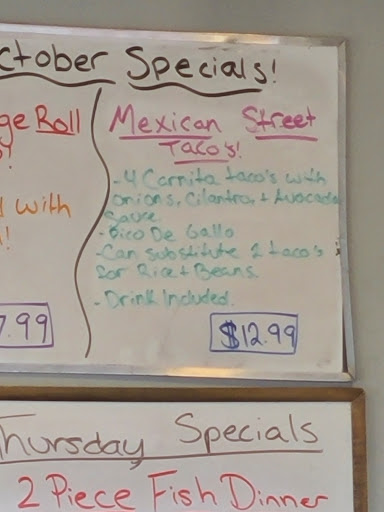 ctober Specials!
ge Roll
!
d with
!
7.99
Mexican Street
Taco's!
- 4 Carnita taco's with
onions, Cilantro, + Avocado
Sauce
- Pico De Gallo
- Can substitute 2 taco's
for Rice + Beans.
- Drink Included.
$12.99
Thursday Specials
2 Piece Fish Dinner